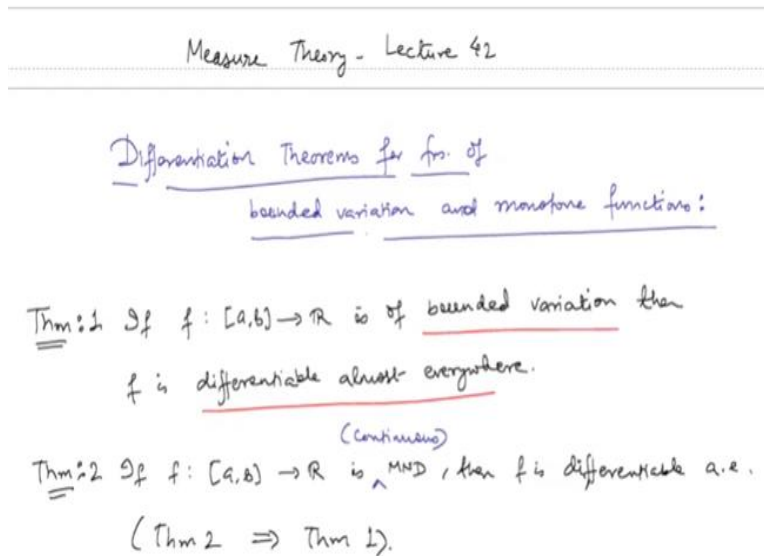 Measure Theory - Lecture 42
Differentiation Theorems for fns. of
bounded variation and monotone functions:
Thm:1 If f : [a,b] → ℝ is of bounded variation then
f is differentiable almost everywhere.
(Continuous)
Thm:2 If f : [a,b] → ℝ is ^ MND, then f is differentiable a.e.
(Thm 2 ⇒ Thm 1).